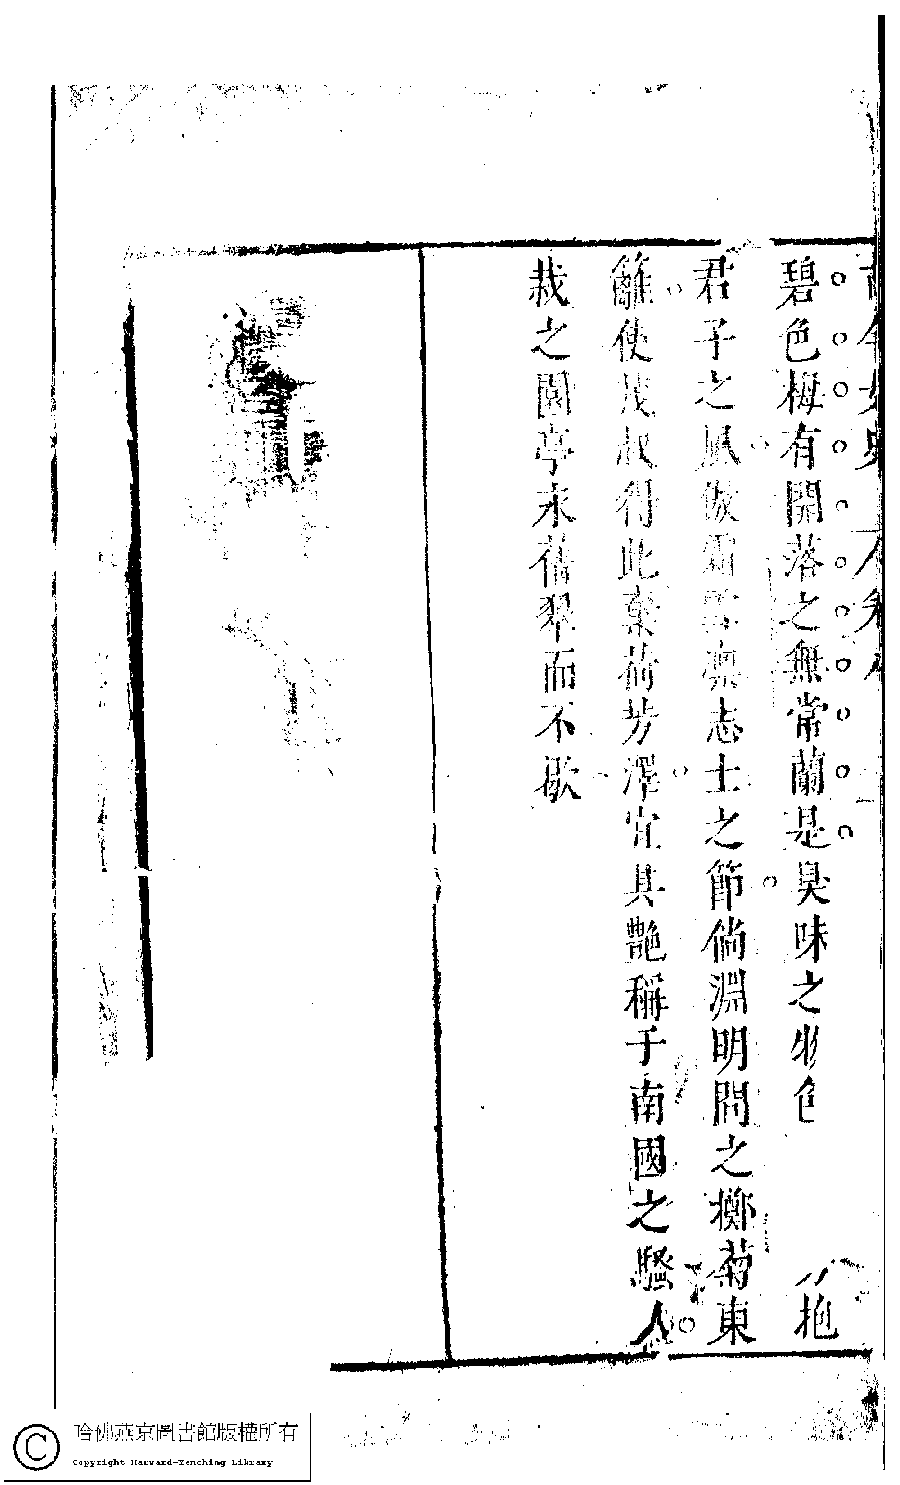 碧色梅有開落之無常蘭是臭味之物色
抱
君子之風傲霜雪凛志士之節倘淵明問之擲菊東
籬使茂叔得此棄荷芳澤宜其艷稱于南國之騷人
栽之園亭永舊翠而不歇
哈佛燕京圖書館版權所有
Copyright Harvard-Yenching Library